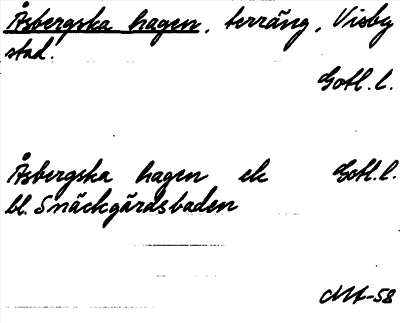 Åsbergska hagen, terräng, Visby
stad.
Gotl. l.
Åsbergska hagen ek Gotl. l.
bl. Snäckgärdsbaden